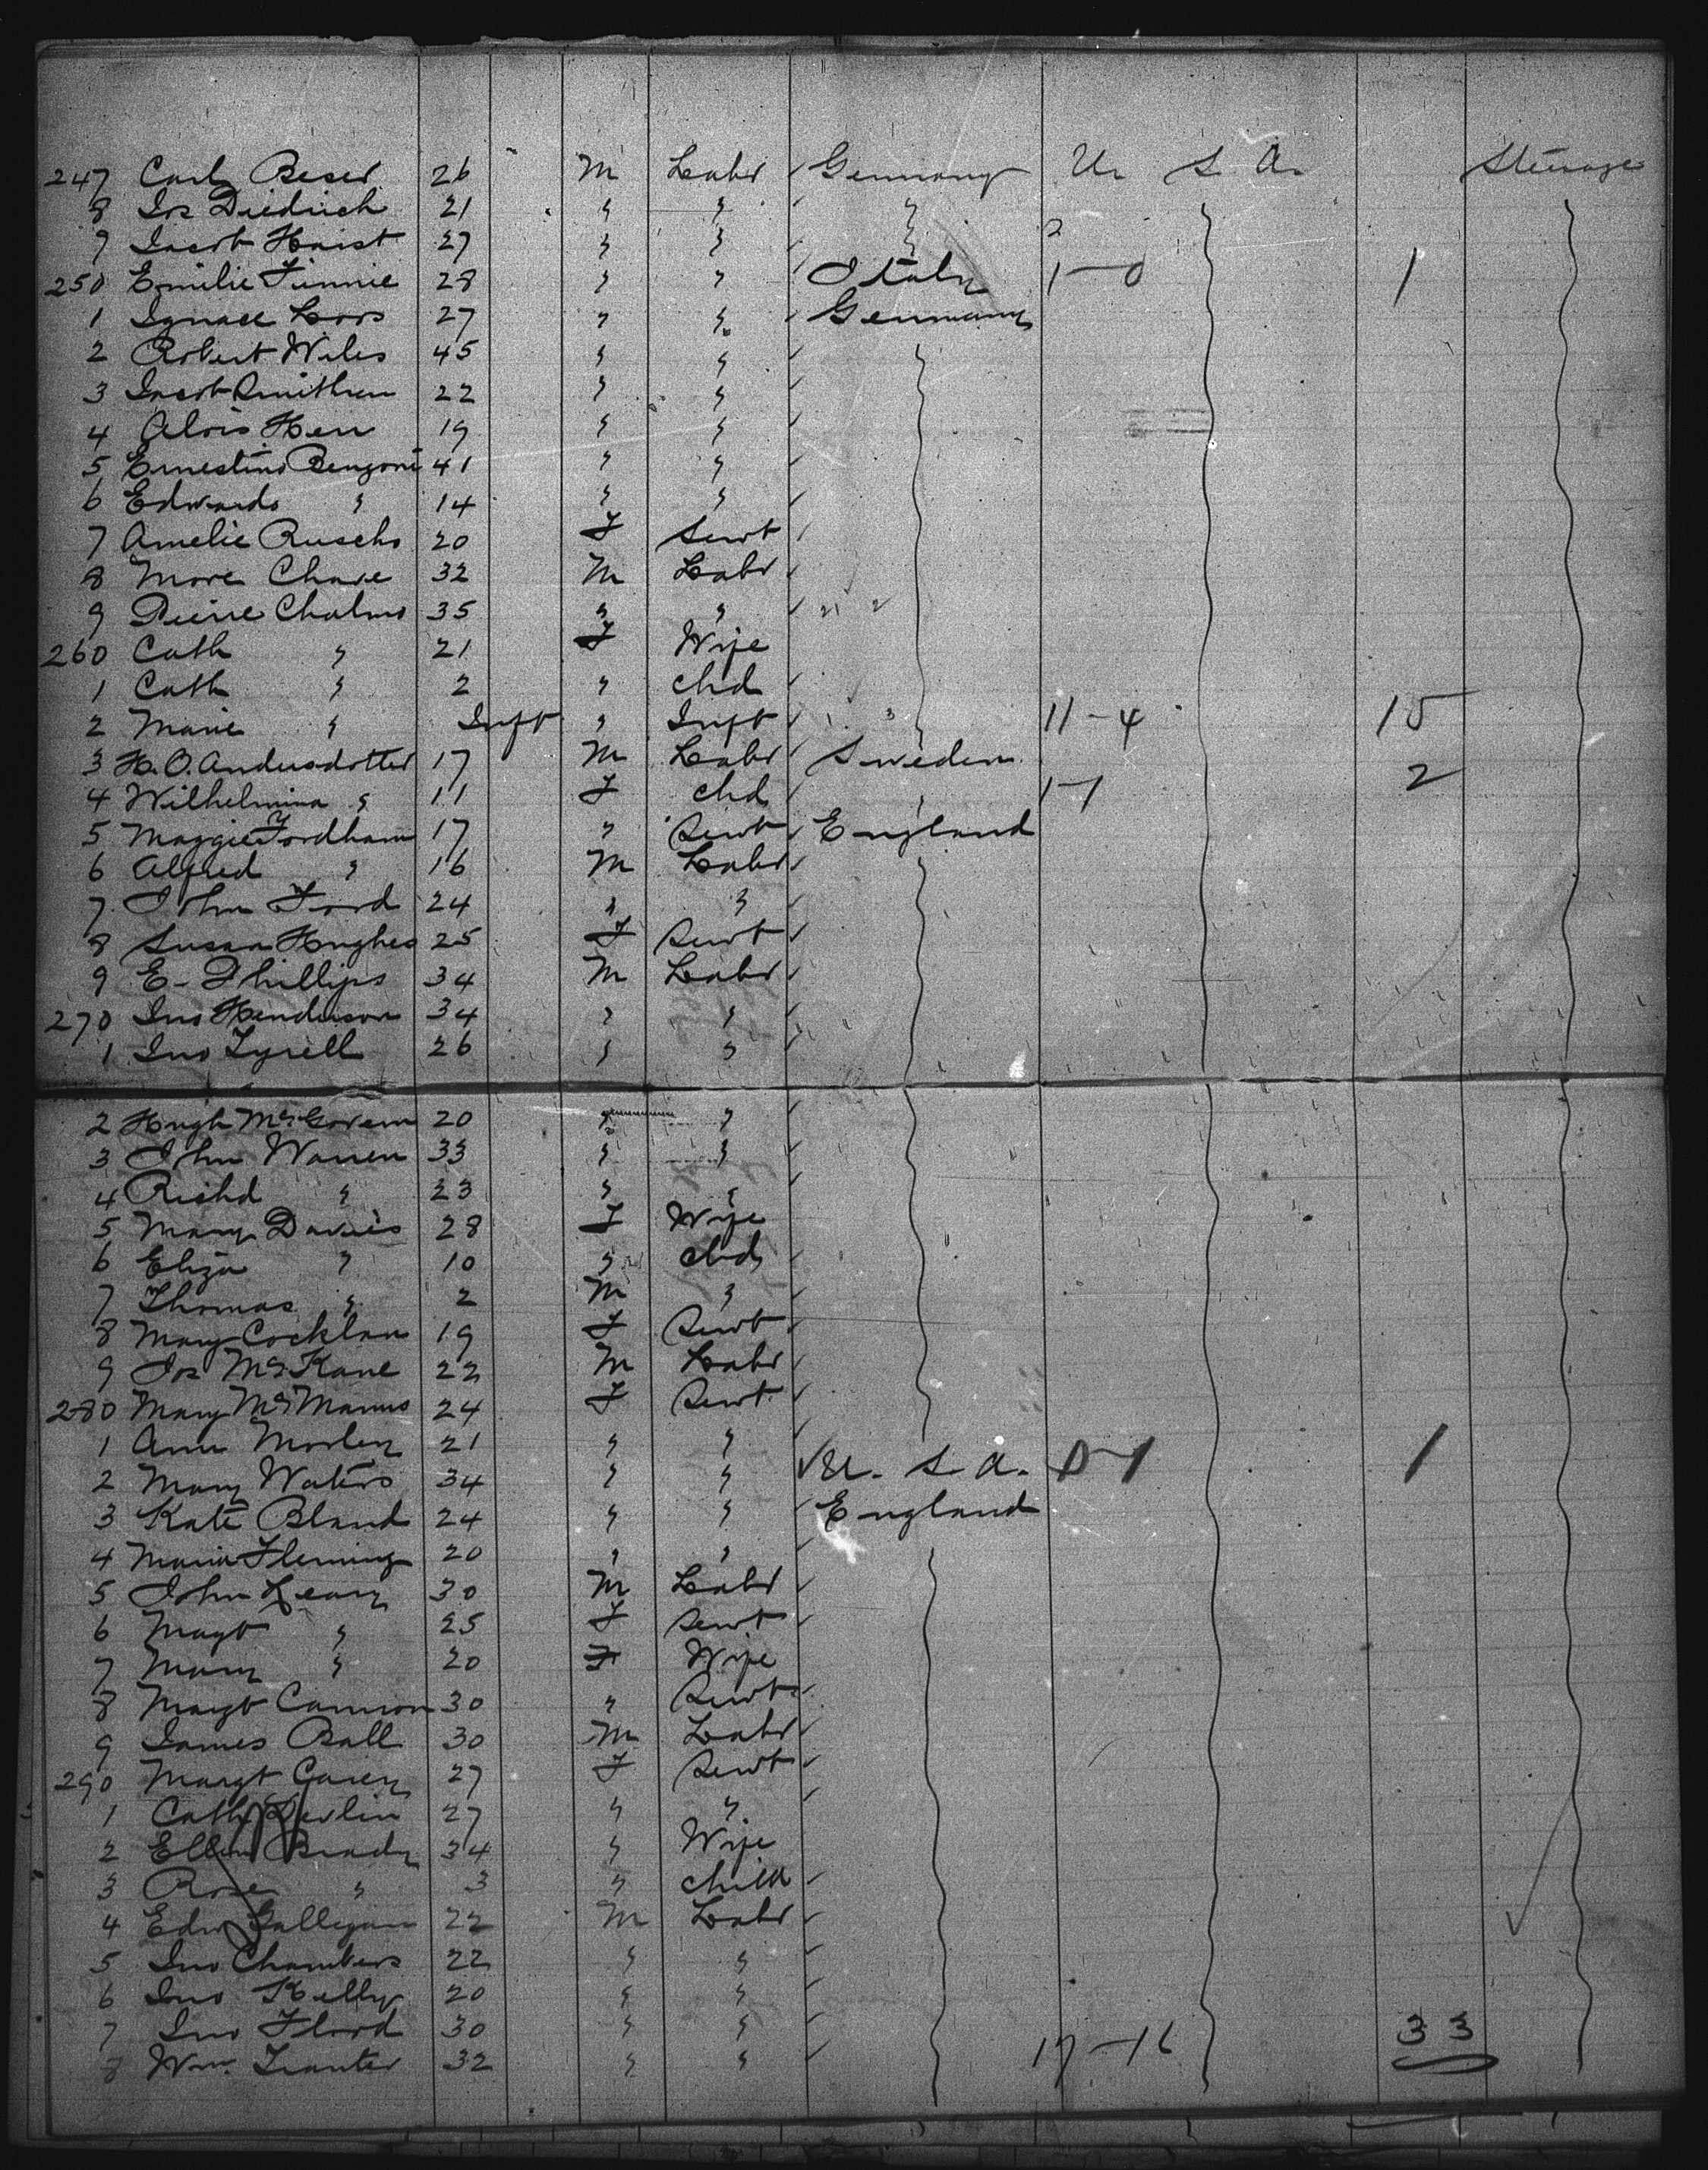 247 Carl Beser 26 M Labr Germany U. S. A. Steerage
8 Jos Diedrich 21 " " "
9 Jacob Haist 27 " " " 2
250 Emilie Finnie 28 " " Italy 1-0 1
1 Ignace Loos 27 " " Germany
2 Robert Wiles 45 " "
3 Jacob Smithren 22 " "
4 Alois Herr 19 " "
5 Ernestino Benzoni 41 " "
6 Edwards " 14 " "
7 Amelie Ruschs 20 F Servt
8 More Chave 32 M Labr
9 Pierre Chalms 35 " "
260 Cath " 21 F Wife
1 Cath " 2 " chd
2 Marie " Inft " Inft 11-4 15
3 H. O. Andersdotter 17 M Labr Sweden
4 Wilhelmina " 11 F chd " 1-1 2
5 Maggie Fordham 17 " Servt England
6 Alfred " 16 M Labr
7 John Ford 24 " "
8 Susan Hughes 25 F Servt
9 E- Phillips 34 M Labr
270 Jno Henderson 34 " "
1 Jno Tyrell 26 " "
2 Hugh McGovern 20 " "
3 John Warren 33 " "
4 Richd " 23 " "
5 Mary Davies 28 F Wife
6 Eliza " 10 " chd
7 Thomas " 2 M "
8 Mary Cocklan 19 F Servt
9 Jos McKane 22 M Labr
280 Mary McManus 24 F Servt
1 Ann Morley 21 " "
2 Mary Waters 34 " " U. S. A. 0-1 1
3 Kate Bland 24 " " England
4 Maria Fleming 20 " "
5 John Leary 30 M Labr
6 Magt " 25 F Servt
7 Mary " 20 F Wife
8 Margt Cannon 30 " Servt
9 James Ball 30 M Labr
290 Margt Carey 27 F Servt
1 Cath Devlin 27 " "
2 Ellen Brady 34 " Wife
3 Rose " 3 " child
4 Edw Galligan 22 M Labr
5 Jno Chambers 22 " "
6 Jno Kelly 20 " "
7 Jno Flood 30 " " 33
8 Wm. Tranter 32 " " 17-16